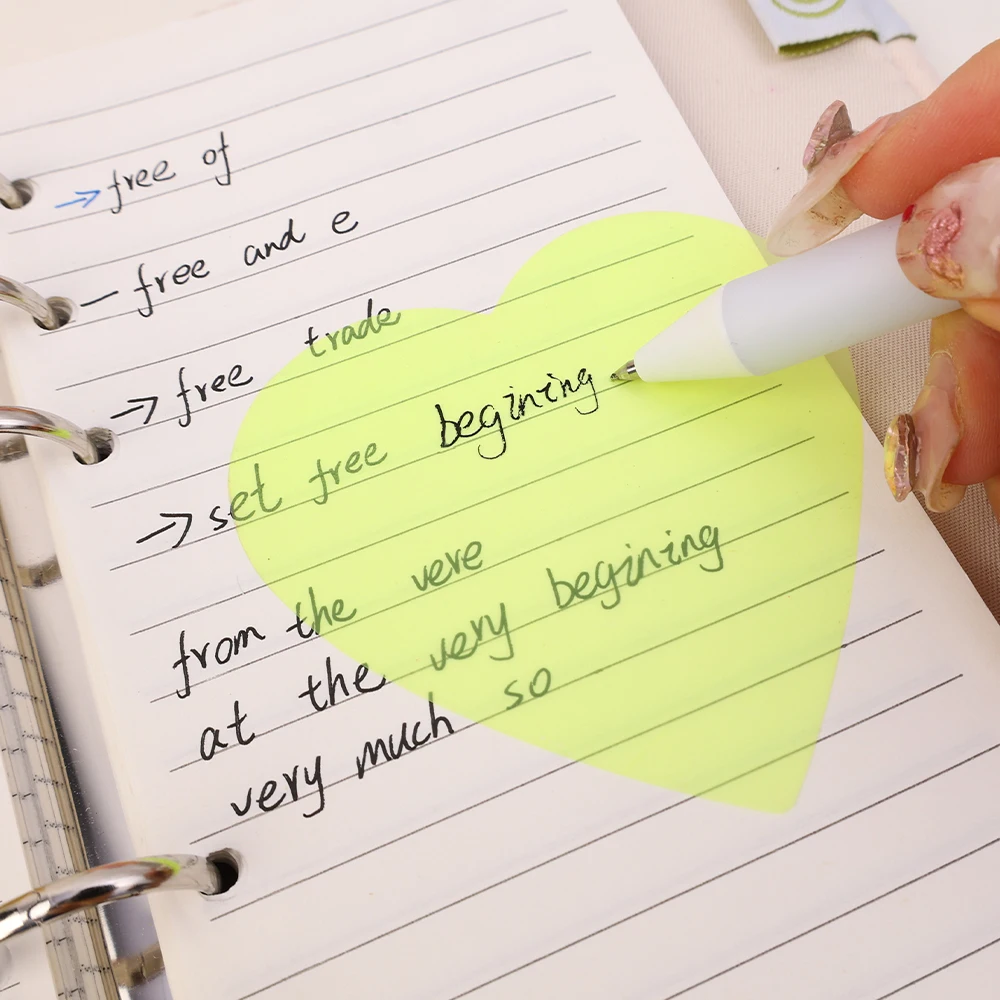 → free of
— free and e
→ free trade
→ set free begining
from the vere
at the very begining
very much so